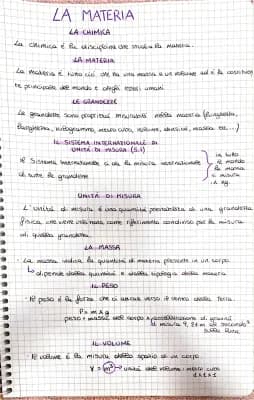 LA MATERIA
LA CHIMICA
La chimica è la disciplina che studia la materia.
LA MATERIA
La materia è tutto ciò che ha una massa e un volume ed è la costituen
te principale del mondo e degli esseri umani.
LE GRANDEZZE
Le grandezze sono proprietà misurabili della materia (lunghezza,
larghezza, kilogrammo, metro cubo, volume, densità, massa ecc...)
IL SISTEMA INTERNAZIONALE DI
UNITÀ DI MISURA (S.I)
Il Sistema Internazionale ci dà la misura internazionale
di tutte le grandezze
in tutto
il mondo
la massa
si misura
in kg.
UNITÀ DI MISURA
L'unità di misura è una quantità prestabilita di una grandezza
fisica, che viene utilizzata come riferimento condiviso per la misura
di quella grandezza.
LA MASSA
La massa indica la quantità di materia presente in un corpo.
dipende dalla quantità e dalla tipologia della materia
IL PESO
Il peso è la forza che ci attrae verso il centro della Terra.
P = m x g
peso = massa del corpo x accelerazione di gravità
si misura 9,81 m al secondo²
sulla Terra
IL VOLUME
Il volume è la misura dello spazio di un corpo.
V = m³ → unità del volume: metro cubo
1x1x1